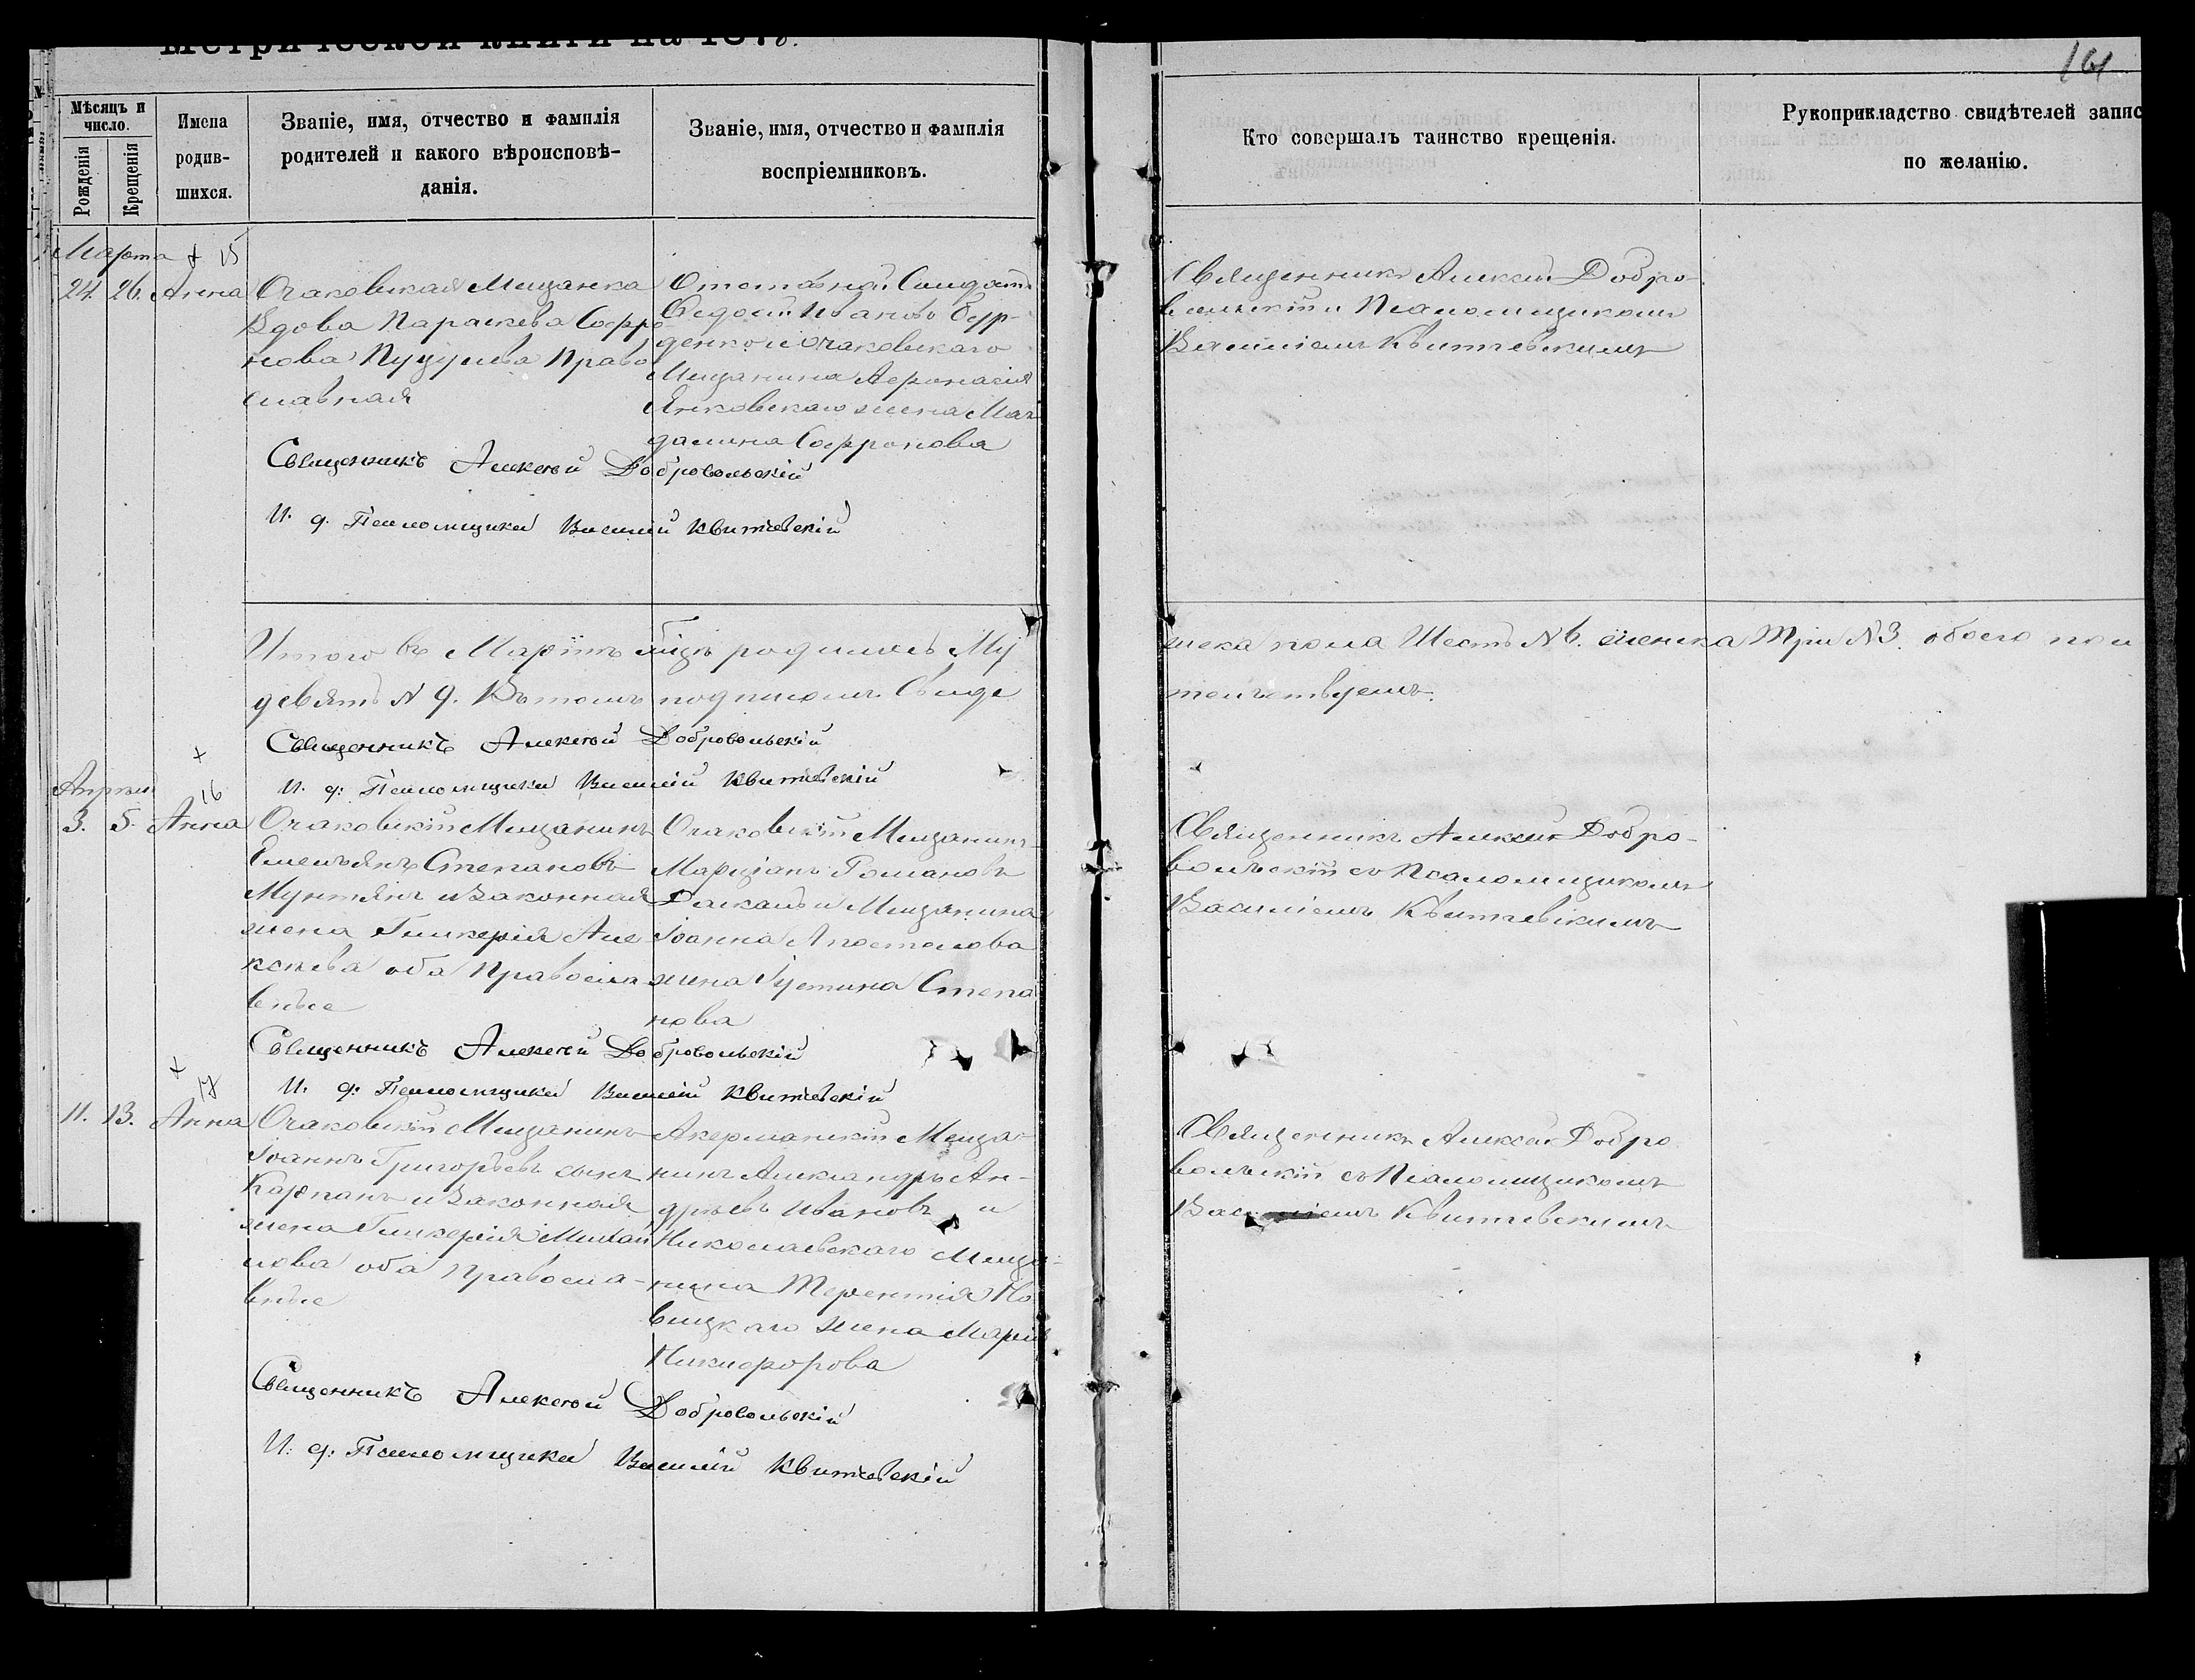 Метрической книги на 187
161
Мѣсяцъ и число.
Рожденія
Крещенія
Имена родив-шихся.
Званіе, имя, отчество и фамилія
родителей и какого вѣроисповѣ-
данія.
Званіе, имя, отчество и фамилія
воспріемниковъ.
Кто совершалъ таинство крещенія.
Рукоприкладство свидѣтелей запис
по желанію.
Марта + 15
24. 26. Анна
Очаковская Мещанка
Вдова Параскева Софро
нова Пуцулева Право
славная
Отставной Солдатъ
Ѳедосій Ивановъ Бур-
денко и Очаковскаго
Мещанина Аѳанасія
Янковскаго жена Маг
далина Софронова
Священникъ Алексѣй Добро-
вольскій и Псаломщикомъ
Василіемъ Квитчевскимъ
Священникъ Алексѣй Добровольскій
И. д. Псаломщика Василій Квитчевскій
Итого въ Мартѣ м-цѣ родилось Му
жеска пола Шесть № 6. женска Три № 3. обоего пол
девять № 9. Въ томъ подписомъ Свиде
тельствуемъ.
Священникъ Алексѣй Добровольскій
И. д: Псаломщика Василій Квитчевскій
Апрѣль + 16
3. 5. Анна
Очаковскій Мещанинъ
Емельянъ Степановъ
Мунтянъ и Законная
жена Гликерія Але
ксѣева оба Правосла
вные
Очаковскій Мещанинъ
Марціанъ Романовъ
Даскалъ и Мещанина
Іоанна Апостолова
жена Іустина Степа
нова
Священникъ Алексѣй Добро-
вольскій съ Псаломщикомъ
Василіемъ Квитчевскимъ
Священникъ Алексѣй Добровольскій
И. д: Псаломщика Василій Квитчевскій
+ 17
11. 13. Анна
Очаковскій Мещанинъ
Іоаннъ Григорьевъ сынъ
Карпанъ и Законная
жена Гликерія Михай
лова оба Правосла-
вные
Акерманскій Меща-
нинъ Александръ Ан-
дрѣевъ Ивановъ и
Николаевскаго Меща-
нина Терентія Но
вицкаго жена Марія
Никифорова
Священникъ Алексѣй Добро
вольскій съ Псаломщикомъ
Василіемъ Квитчевскимъ
Священникъ Алексѣй Добровольскій
И: д: Псаломщика Василій Квитчевскій